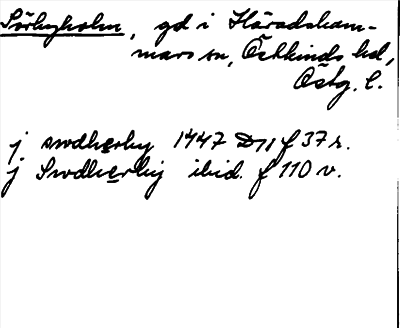 Sörbyholm, gd i Häradsham-
mars sn, Östkinds hd,
Östg. l.
j swdherby 1447 D11 f 37 r.
j Swdherbij ibid. f 110 v.